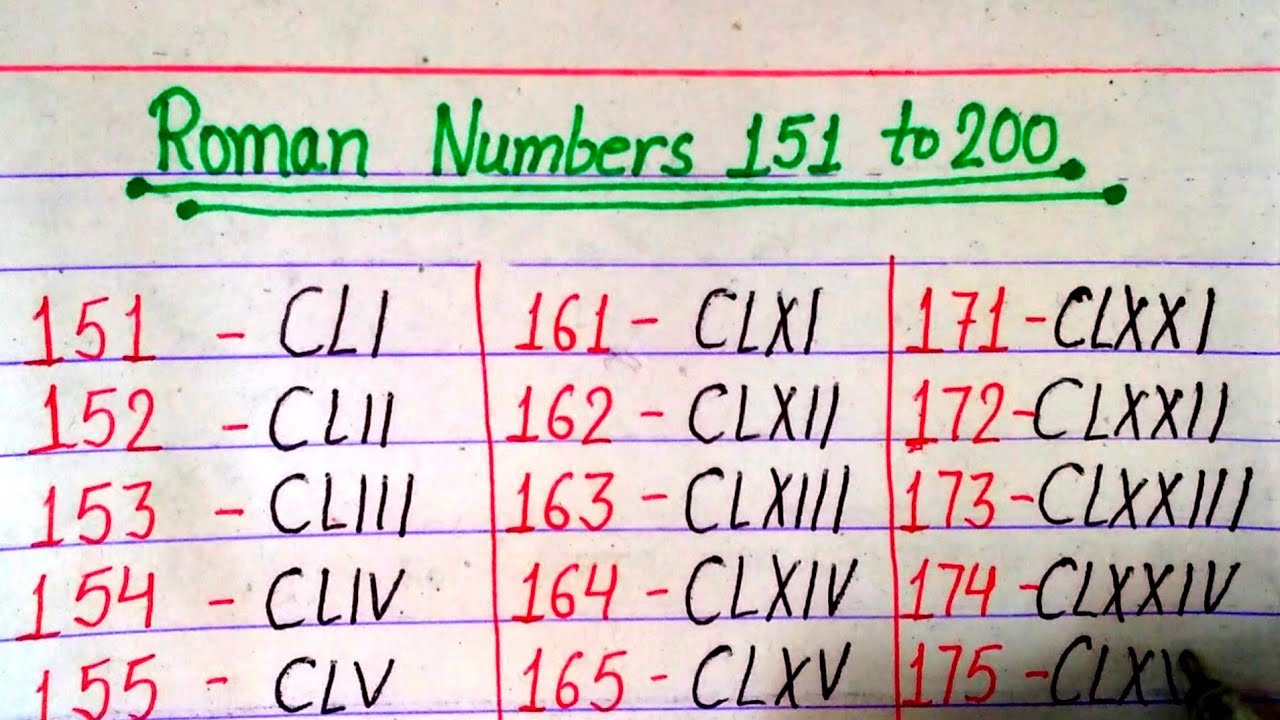 Roman Numbers 151 to 200
151 - CLI 161 - CLXI 171 - CLXXI
152 - CLII 162 - CLXII 172 - CLXXII
153 - CLIII 163 - CLXIII 173 - CLXXIII
154 - CLIV 164 - CLXIV 174 - CLXXIV
155 - CLV 165 - CLXV 175 -